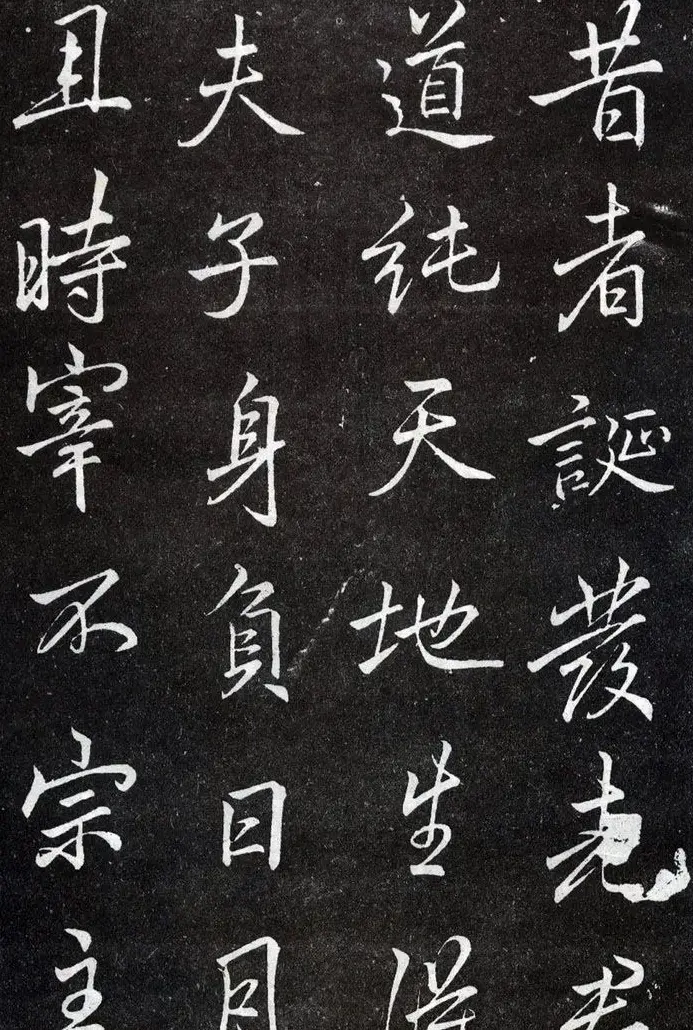 昔者誕發
道純天地生得
夫子身負日月
且時宰不宗主